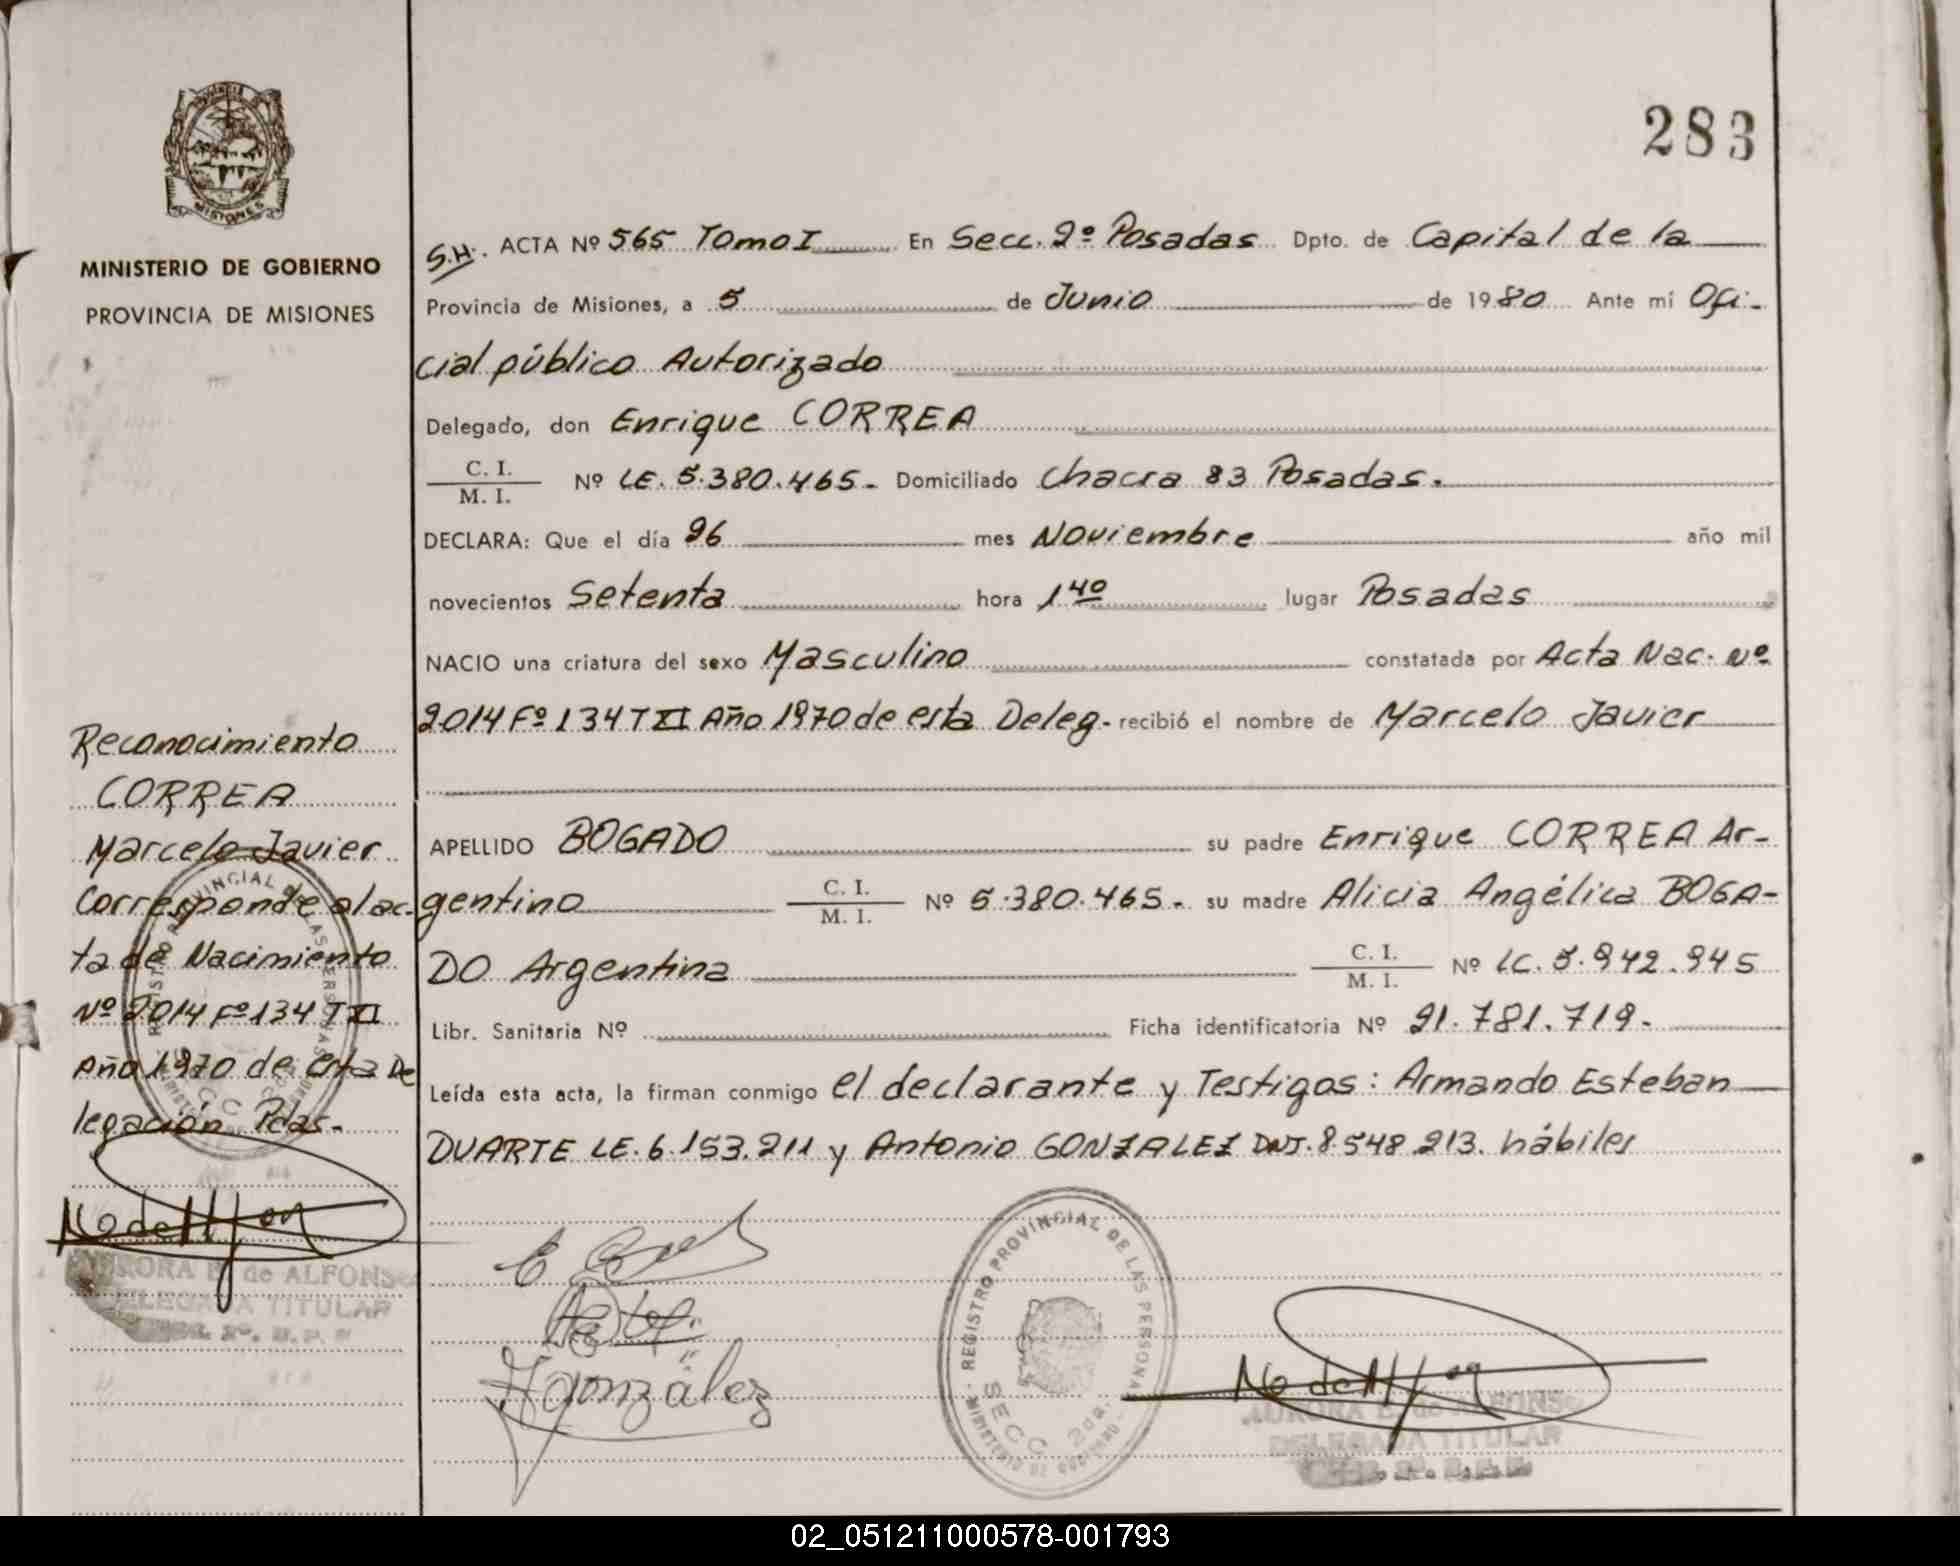 283
MISIONES
MINISTERIO DE GOBIERNO
PROVINCIA DE MISIONES
S.H. ACTA Nº 565 Tomo I En Secc. 2º Posadas Dpto. de Capital de la
Provincia de Misiones, a 5 de Junio de 1980 Ante mí Ofi-
cial público Autorizado
Delegado, don Enrique CORREA
C. I.
M. I.
Nº LE. 5.380.465.- Domiciliado Chacra 83 Posadas.
DECLARA: Que el día 26 mes Noviembre año mil
novecientos Setenta hora 1 40 lugar Posadas
NACIO una criatura del sexo Masculino constatada por Acta Nac. Nº
2014 Fº 134 T XI Año 1970 de esta Deleg. recibió el nombre de Marcelo Javier
APELLIDO BOGADO su padre Enrique CORREA Ar-
gentino C. I. M. I. Nº 5.380.465.- su madre Alicia Angélica BOGA-
DO Argentina C. I. M. I. Nº LC. 5.942.945
Libr. Sanitaria Nº Ficha identificatoria Nº 21.781.719.-
Leída esta acta, la firman conmigo el declarante y Testigos: Armando Esteban
DUARTE LE. 6.153.211 y Antonio GONZALEZ DNI. 8.548.213. hábiles
Reconocimiento
CORREA
Marcelo Javier
Corresponde al ac-
ta de Nacimiento
Nº 2014 Fº 134 T XI
Año 1970 de esta De
legación Pdas.-
AURORA E. de ALFONSO
DELEGADA TITULAR
González
REGISTRO PROVINCIAL DE LAS PERSONAS
SECC 2da.
MINISTERIO DE GOBIERNO
AURORA E. de ALFONSO
DELEGADA TITULAR
02_051211000578-001793